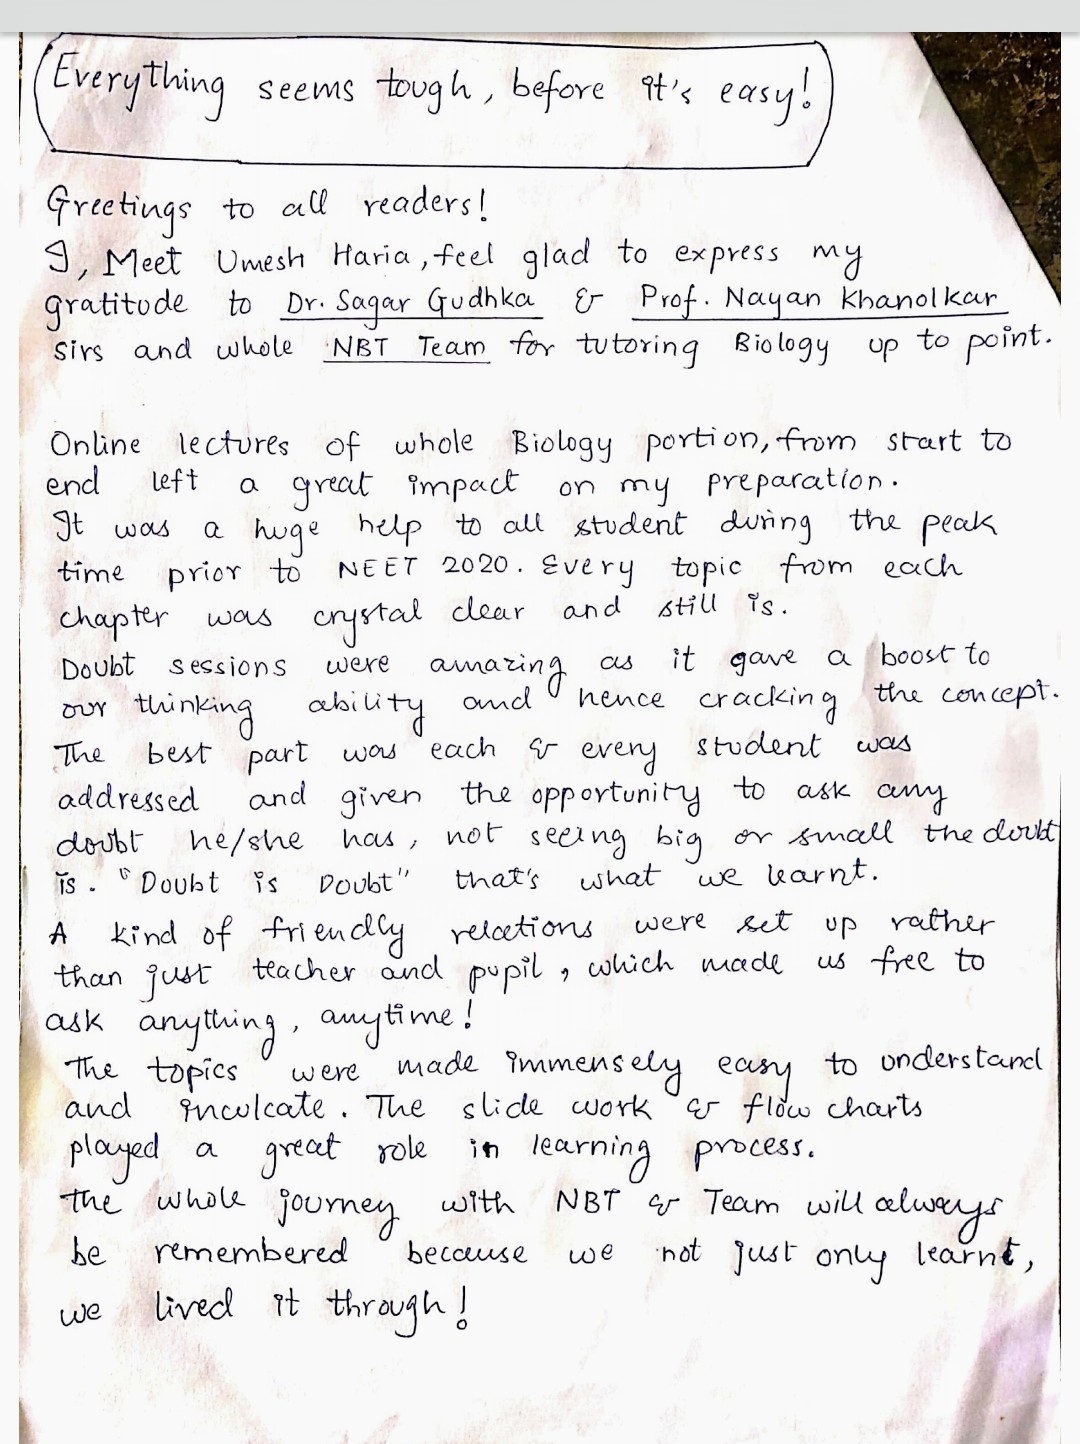 Everything seems tough, before it's easy!
Greetings to all readers!
I, Meet Umesh Haria, feel glad to express my
gratitude to Dr. Sagar Gudhka & Prof. Nayan Khanolkar
sirs and whole NBT Team for tutoring Biology up to point.
Online lectures of whole Biology portion, from start to
end left a great impact on my preparation.
It was a huge help to all student during the peak
time prior to NEET 2020. Every topic from each
chapter was crystal clear and still is.
Doubt sessions were amazing as it gave a boost to
our thinking ability and hence cracking the concept.
The best part was each & every student was
addressed and given the opportunity to ask any
doubt he/she has, not seeing big or small the doubt
is. "Doubt is Doubt" that's what we learnt.
A kind of friendly relations were set up rather
than just teacher and pupil, which made us free to
ask anything, anytime!
The topics were made immensely easy to understand
and inculcate. The slide work & flow charts
played a great role in learning process.
The whole journey with NBT & Team will always
be remembered because we not just only learnt,
we lived it through!